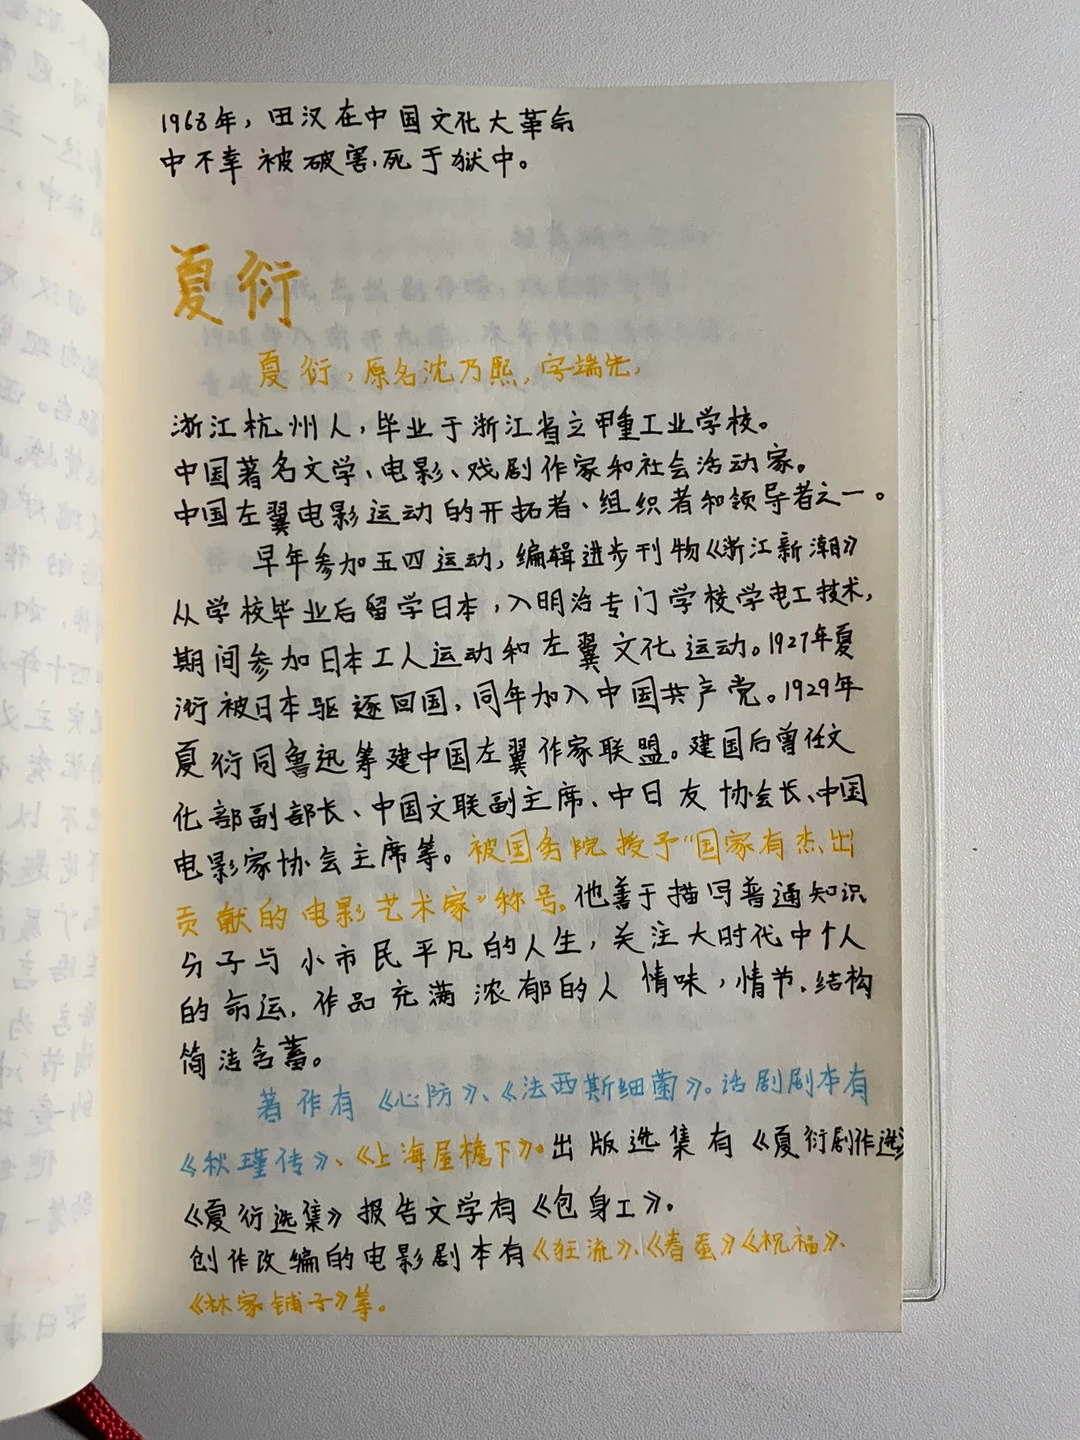 1968年，田汉在中国文化大革命
中不幸被破害，死于狱中。
夏衍
夏衍，原名沈乃熙，字端先，
浙江杭州人，毕业于浙江省立甲重工业学校。
中国著名文学、电影、戏剧作家和社会活动家。
中国左翼电影运动的开拓者、组织者和领导者之一。
早年参加五四运动，编辑进步刊物《浙江新潮》
从学校毕业后留学日本，入明治专门学校学电工技术，
期间参加日本工人运动和左翼文化运动。1927年夏
衍被日本驱逐回国，同年加入中国共产党。1929年
夏衍同鲁迅筹建中国左翼作家联盟。建国后曾任文
化部副部长、中国文联副主席、中日友协会长、中国
电影家协会主席等。被国务院授予“国家有杰出
贡献的电影艺术家”称号。他善于描写普通知识
分子与小市民平凡的人生，关注大时代中个人
的命运，作品充满浓郁的人情味，情节、结构
简洁含蓄。
著作有《心防》、《法西斯细菌》。话剧剧本有
《秋瑾传》、《上海屋檐下》。出版选集有《夏衍剧作选》
《夏衍选集》报告文学有《包身工》。
创作改编的电影剧本有《狂流》、《春蚕》《祝福》、
《林家铺子》等。